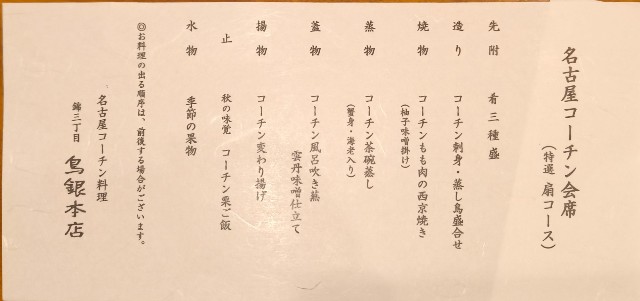 名古屋コーチン会席
(特選 扇コース)
先附 肴三種盛
造り コーチン刺身・蒸し鳥盛合せ
焼物 コーチンもも肉の西京焼き
(柚子味噌掛け)
蒸物 コーチン茶碗蒸し
(蟹身・海老入り)
蓋物 コーチン風呂吹き蕪
雲丹味噌仕立て
揚物 コーチン変わり揚げ
止 秋の味覚 コーチン栗ご飯
水物 季節の果物
◎お料理の出る順序は、前後する場合がございます。
名古屋コーチン料理
錦三丁目 鳥銀本店